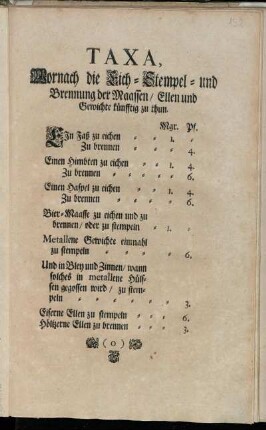 TAXA,
Wornach die Eich-Stempel- und
Brennung der Maassen/ Ellen und
Gewichte künfftig zu thun.
Mgr. Pf.
EIn Faß zu eichen „ „ 1. „
Zu brennen „ „ „ „ 4.
Einen Himbten zu eichen „ „ 1. 4.
Zu brennen „ „ „ „ 6.
Einen Haspel zu eichen „ „ 1. 4.
Zu brennen „ „ „ „ 6.
Bier-Maasse zu eichen und zu
brennen/ oder zu stempeln „ 1. „
Metallene Gewichte einmahl
zu stempeln „ „ „ „ 6.
Und in Bley und Zinnen/ wann
solches in metallene Hülf-
sen gegossen wird/ zu stem-
peln „ „ „ „ „ 3.
Eiserne Ellen zu stempeln „ „ 6.
Höltzerne Ellen zu brennen „ „ 3.
(o)